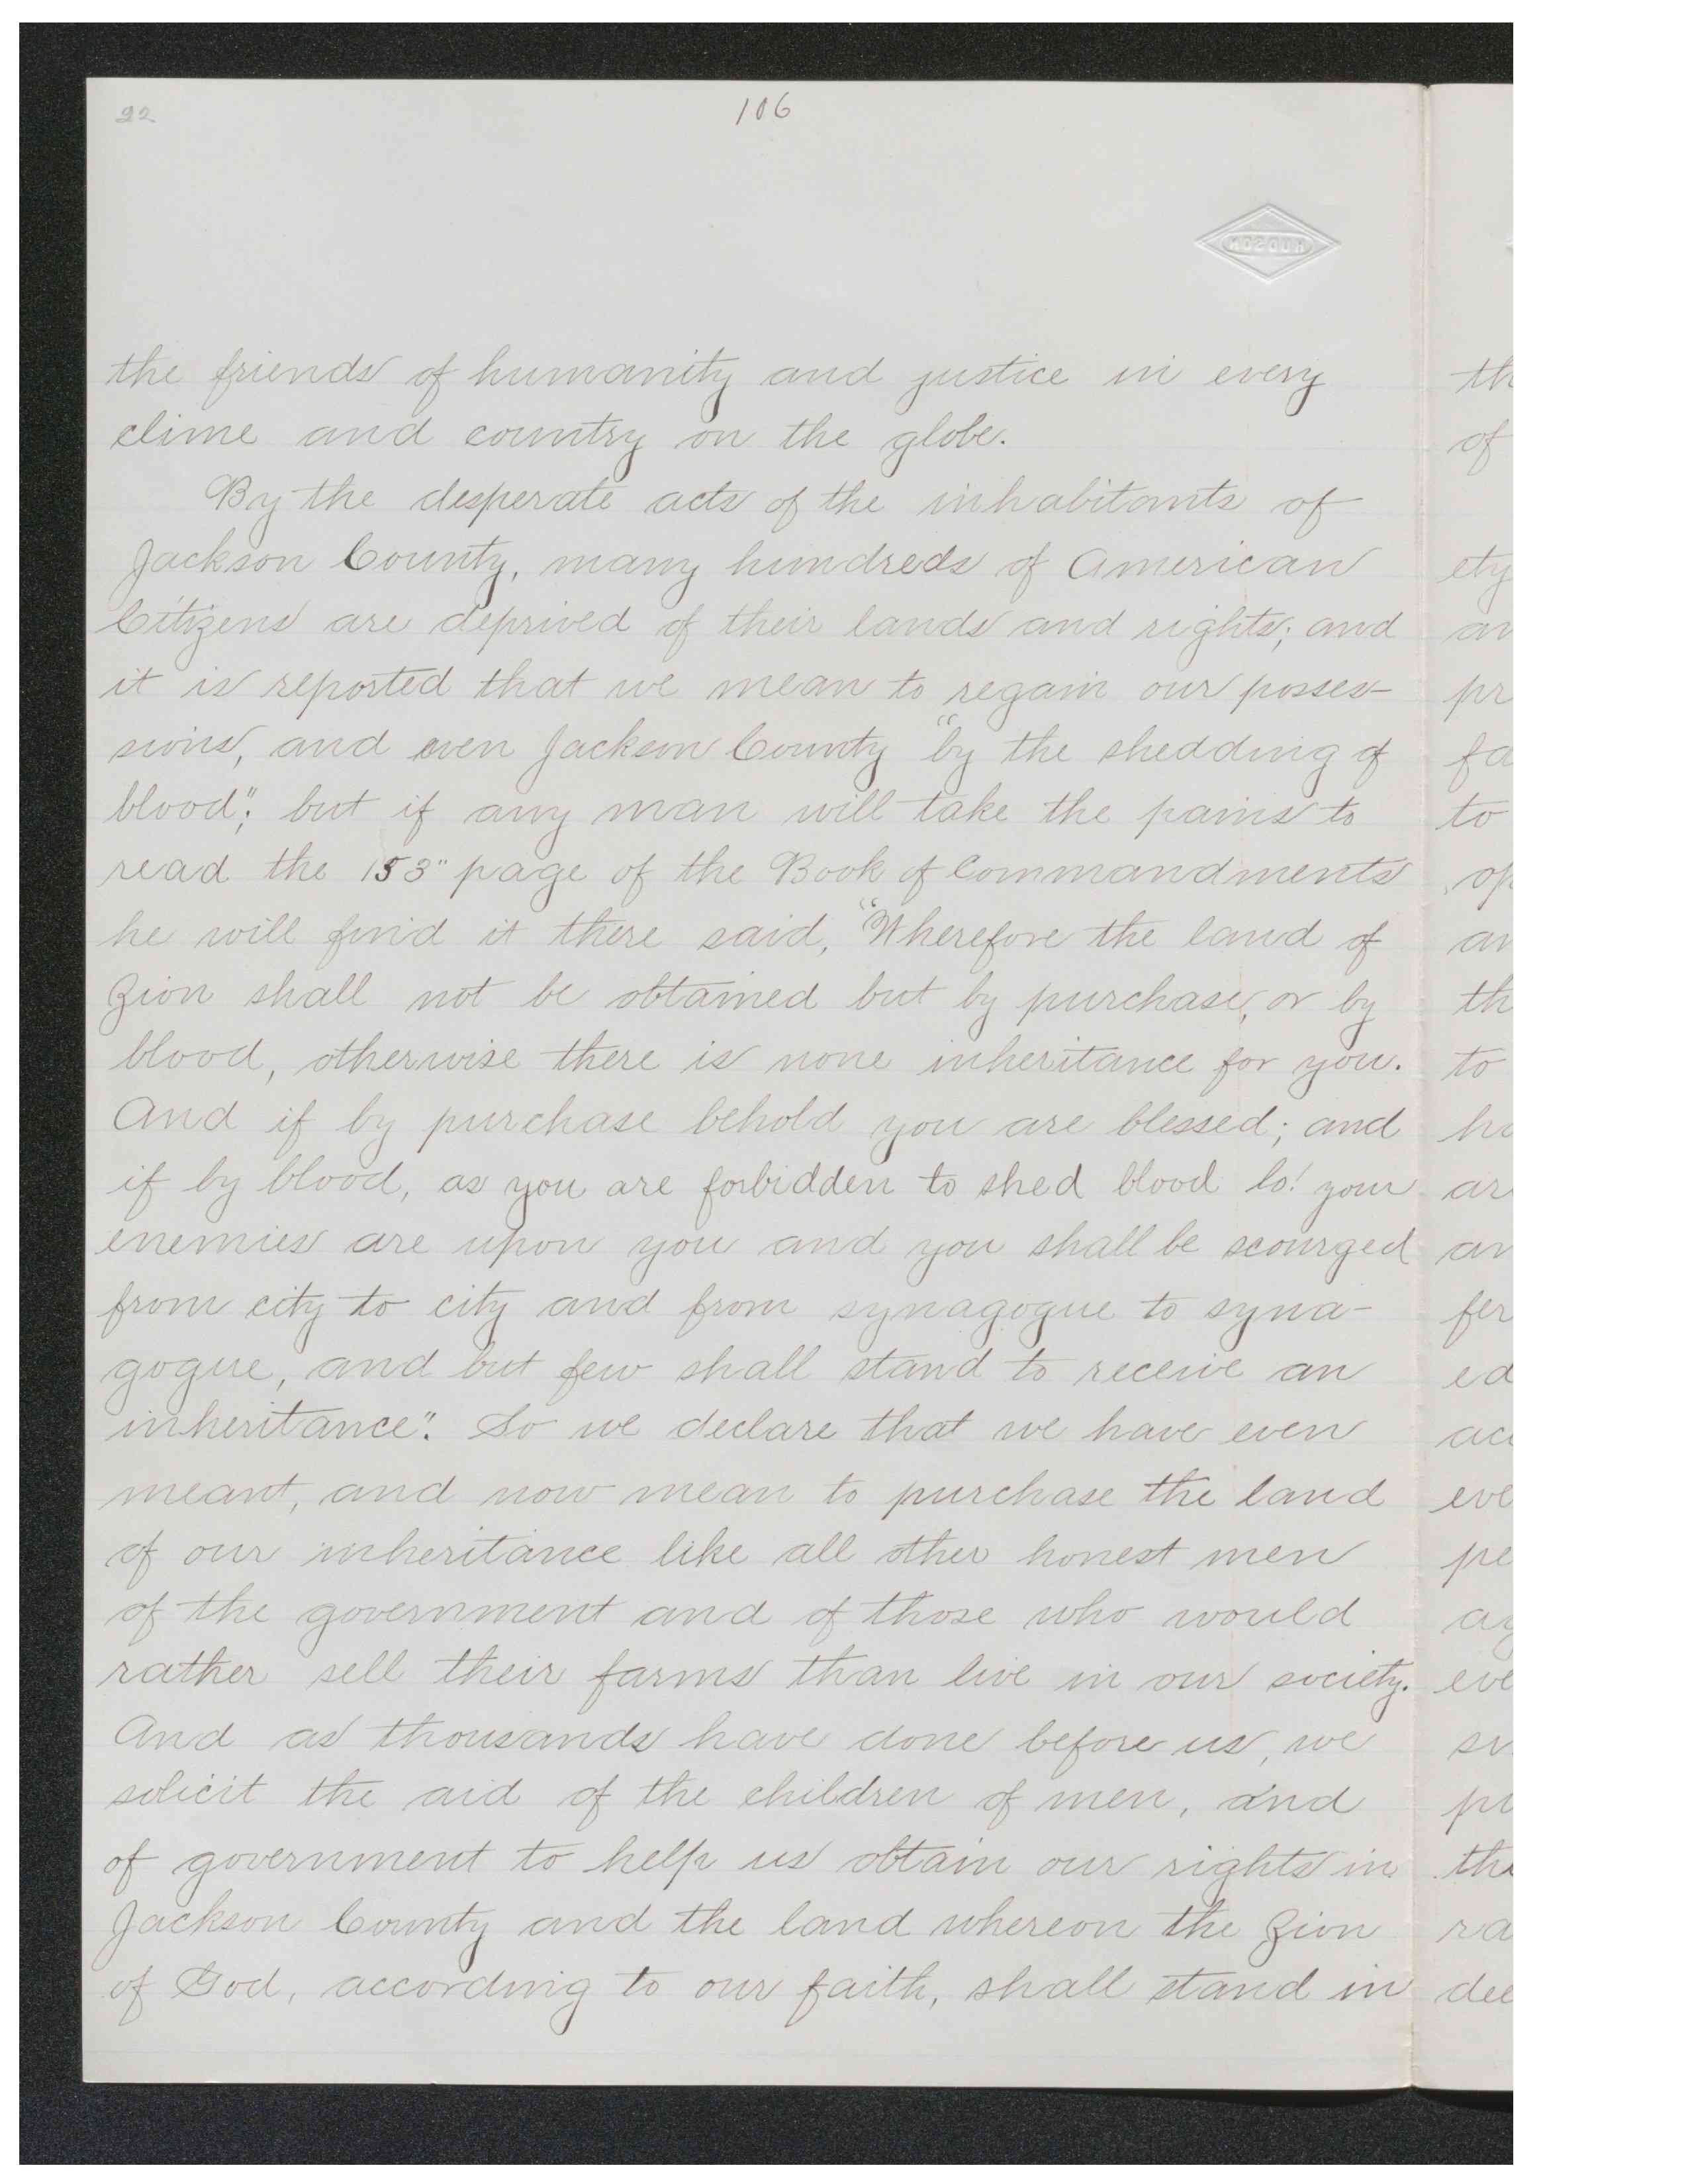 22
106
HUDSON
the friends of humanity and justice in every
clime and country on the globe.
By the desperate acts of the inhabitants of
Jackson County, many hundreds of American
Citizens are deprived of their lands and rights; and
it is reported that we mean to regain our posses-
sions, and even Jackson County "by the shedding of
blood"; but if any man will take the pains to
read the 153" page of the Book of Commandments
he will find it there said, "Wherefore the land of
Zion shall not be obtained but by purchase, or by
blood, otherwise there is none inheritance for you.
And if by purchase behold you are blessed; and
if by blood, as you are forbidden to shed blood lo! your
enemies are upon you and you shall be scourged
from city to city and from synagogue to syna-
gogue, and but few shall stand to receive an
inheritance". So we declare that we have even
meant, and now mean to purchase the land
of our inheritance like all other honest men
of the government and of those who would
rather sell their farms than live in our society.
And as thousands have done before us, we
solicit the aid of the children of men, and
of government to help us obtain our rights in
Jackson County and the land whereon the Zion
of God, according to our faith, shall stand in